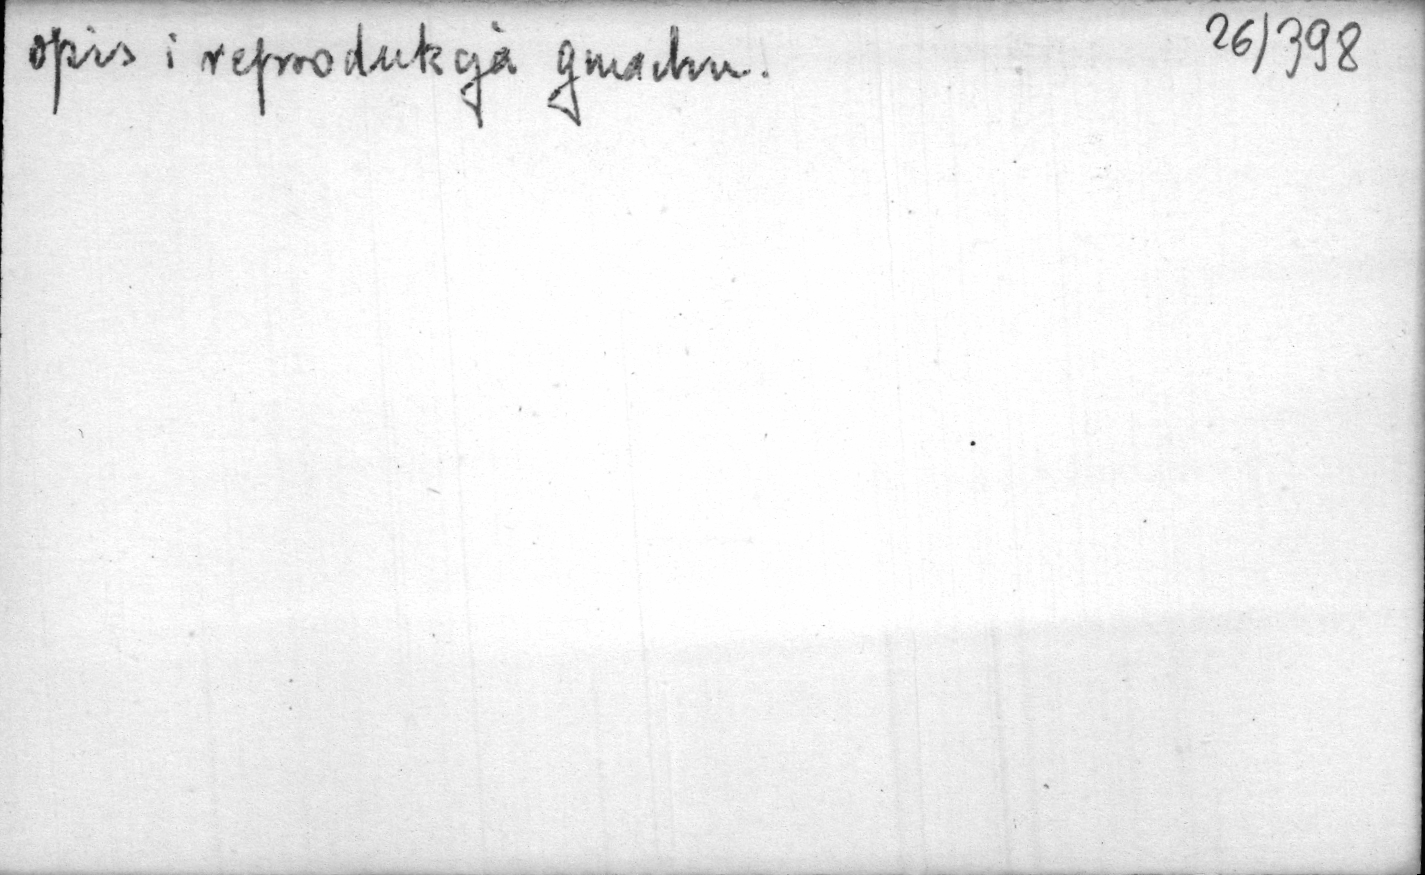 opis i reprodukcja gmachu. 26/398